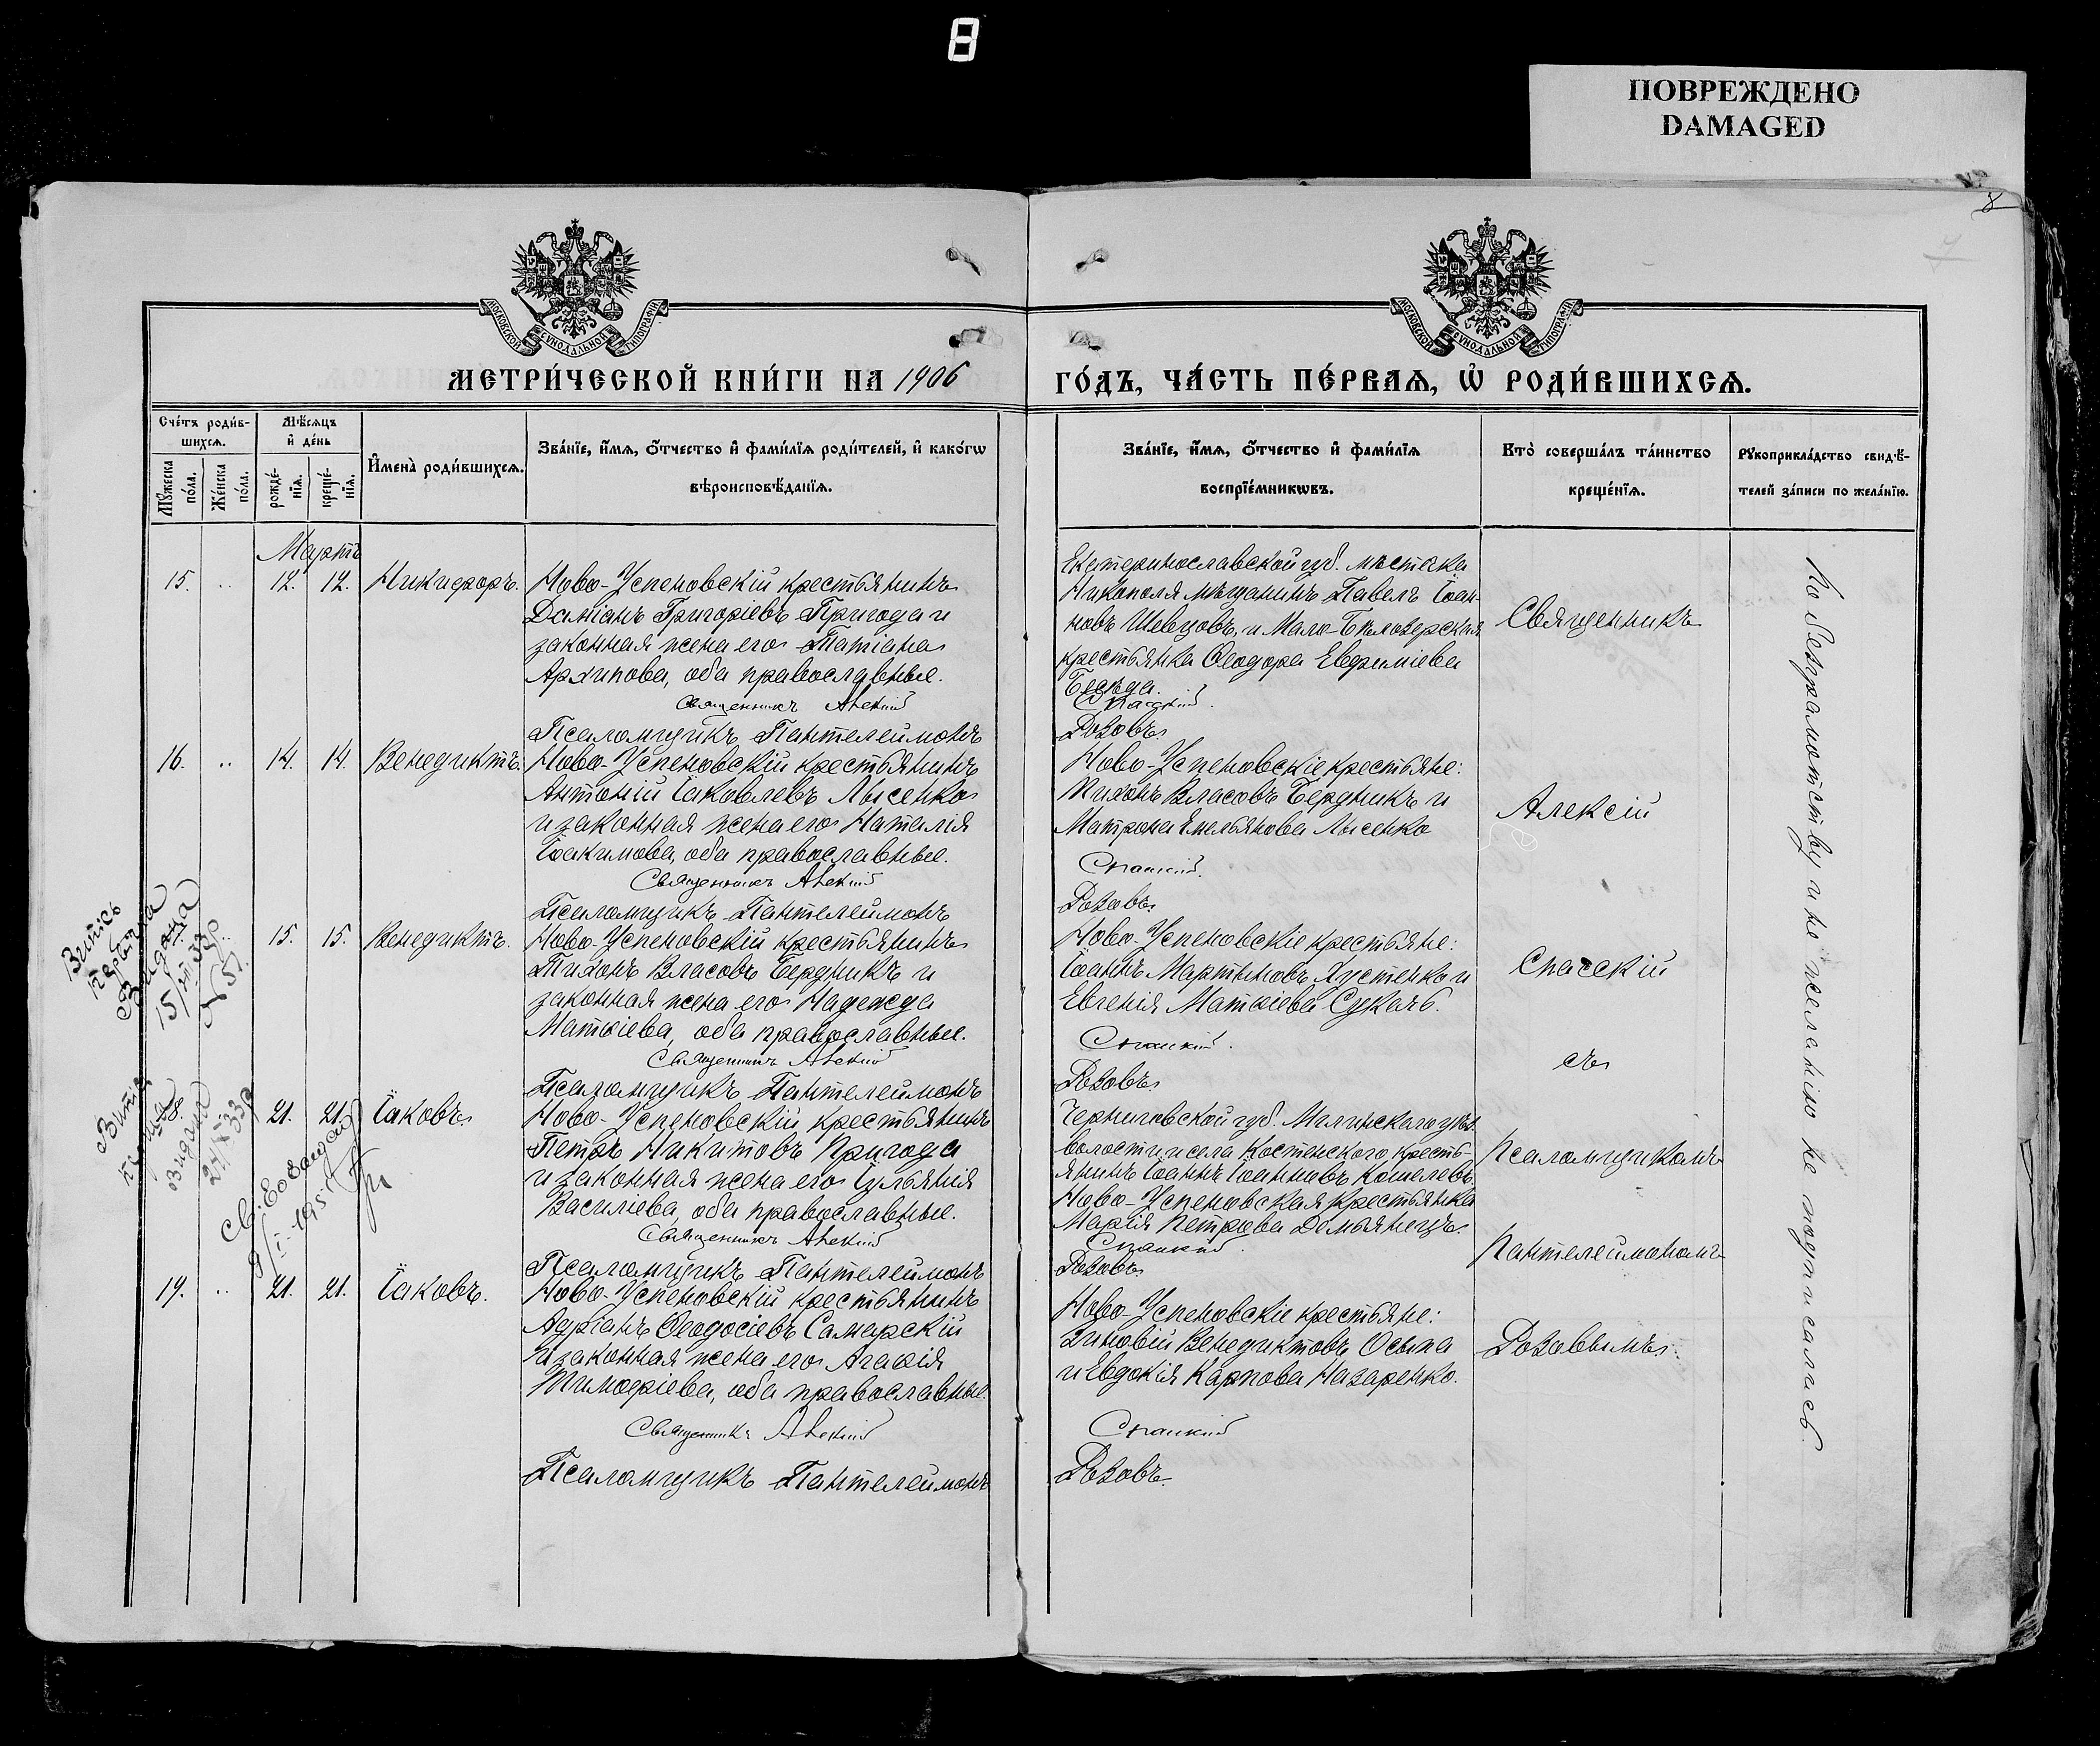 8
ПОВРЕЖДЕНО
DAMAGED
8
МОСКОВСКОЙ СѴНОДАЛЬНОЙ ТИПОГРАФІИ
МОСКОВСКОЙ СѴНОДАЛЬНОЙ ТИПОГРАФІИ
МЕТРИ́ЧЕСКОЙ КНИ́ГИ НА 1906
ГО́ДЪ, ЧА́СТЬ ПЕ́РВАѦ, Ѡ҆ РОДИ́ВШИХСѦ.
Сче́тъ роди́в-
шихсѧ.
Мꙋ́жеска по́ла.
Же́нска по́ла.
Мѣ́сѧцъ
и҆ де́нь
рожде́-
нїѧ.
креще́-
нїѧ.
И҆мена̀ роди́вшихсѧ.
Зва́нїе, и҆́мѧ, ѻ҆́тчество и҆ фами́лїѧ роди́телей, и҆ како́гѡ
вѣроисповѣ́данїѧ.
Зва́нїе, и҆́мѧ, ѻ҆́тчество и҆ фами́лїѧ
воспрїе́мникѡвъ.
Кто̀ соверша́лъ та́инство
креще́нїѧ.
Рꙋкоприкла́дство свидѣ́-
телей за́писи по жела́нїю.
Мартъ
15. .. 12. 12. Никифоръ.
Ново-Успеновскій крестьянинъ
Даміанъ Григоріевъ Пригода и
законная жена его Татіана
Архипова, оба православные.
Священникъ Алексій
Псаломщикъ Пантелеймонъ
Екатеринославской губ. мѣстечка
Никополя мѣщанинъ Павелъ Іоан-
новъ Шевцовъ, и Мало-Бѣлозерская
крестьянка Ѳеодора Евфиміева
Бесѣда.
Спасскій.
Розовъ.
16. .. 14. 14. Венедиктъ.
Ново-Успеновскій крестьянинъ
Антоній Іаковлевъ Лысенко
и законная жена его Наталія
Іоакимова, оба православные.
Священникъ Алексій
Псаломщикъ Пантелеймонъ
Ново-Успеновскіе крестьяне:
Тихонъ Власовъ Бердникъ и
Матрона Емельянова Лысенко
Спасскій.
Розовъ.
Витяг
первина
Видана
15. 15. Венедиктъ.
Ново-Успеновскій крестьянинъ
Тихонъ Власовъ Бердникъ и
законная жена его Надежда
Матѳіева, оба православные.
Священникъ Алексій
Псаломщикъ Пантелеймонъ
Ново-Успеновскіе крестьяне:
Іоаннъ Мартиновъ Хустенко и
Евгенія Матѳіева Сукачъ.
Спасскій.
Розовъ.
видана
21. 21. Іаковъ
Ново-Успеновскій крестьянинъ
Петръ Никитовъ Пригода
и законная жена его Іуліанія
Василіева, оба православные.
Священникъ Алексій
Псаломщикъ Пантелеймонъ
Черниговской губ. Мглинскаго уѣз.
волости и села Костенского кресть-
янинъ Іоаннъ Іоанновъ Кошелевъ.
Ново-Успеновская крестьянка
Марія Петрова Демьянецъ.
Спасскій.
Розовъ.
19. .. 21. 21. Іаковъ.
Ново-Успеновскій крестьянинъ
Адріанъ Ѳеодосіевъ Самарскій
и законная жена его Агаѳія
Тимофіева, оба православные.
Священникъ Алексій
Псаломщикъ Пантелеймонъ
Ново-Успеновскіе крестьяне:
Зиновій Венедиктовъ Осыпа
и Евдокія Карпова Назаренко.
Спасскій
Розовъ.
Священникъ
Алексій
Спасскій
съ
Псаломщикомъ
Пантелеймономъ
Розовымъ.
По безграмотству и не желанію не подписались.